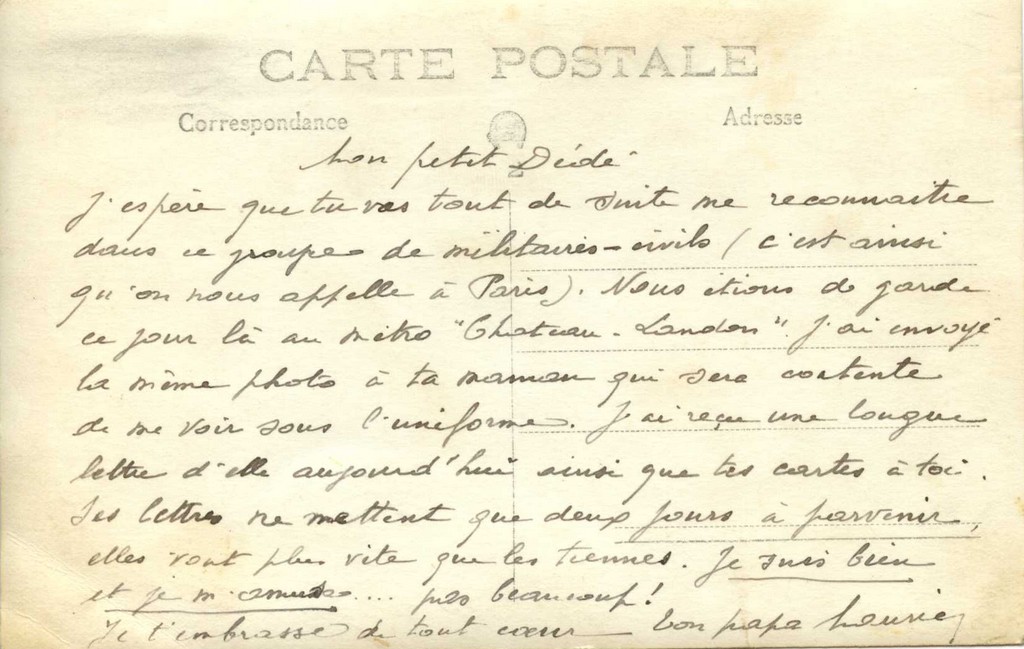 CARTE POSTALE
Correspondance Adresse
Mon petit Dédé
J'espère que tu vas tout de suite me reconnaitre
dans ce groupe de militaires-civils (c'est ainsi
qu'on nous appelle à Paris). Nous étions de garde
ce jour là au métro "Chateau-Landon". J'ai envoyé
la même photo à ta maman qui sera contente
de me voir sous l'uniforme. J'ai reçu une longue
lettre d'elle aujourd'hui ainsi que tes cartes à toi.
Ses lettres ne mettent que deux jours à parvenir,
elles vont plus vite que les tiennes. Je suis bien
et je m'amuse.... pas beaucoup!
Je t'embrasse de tout cœur Ton papa